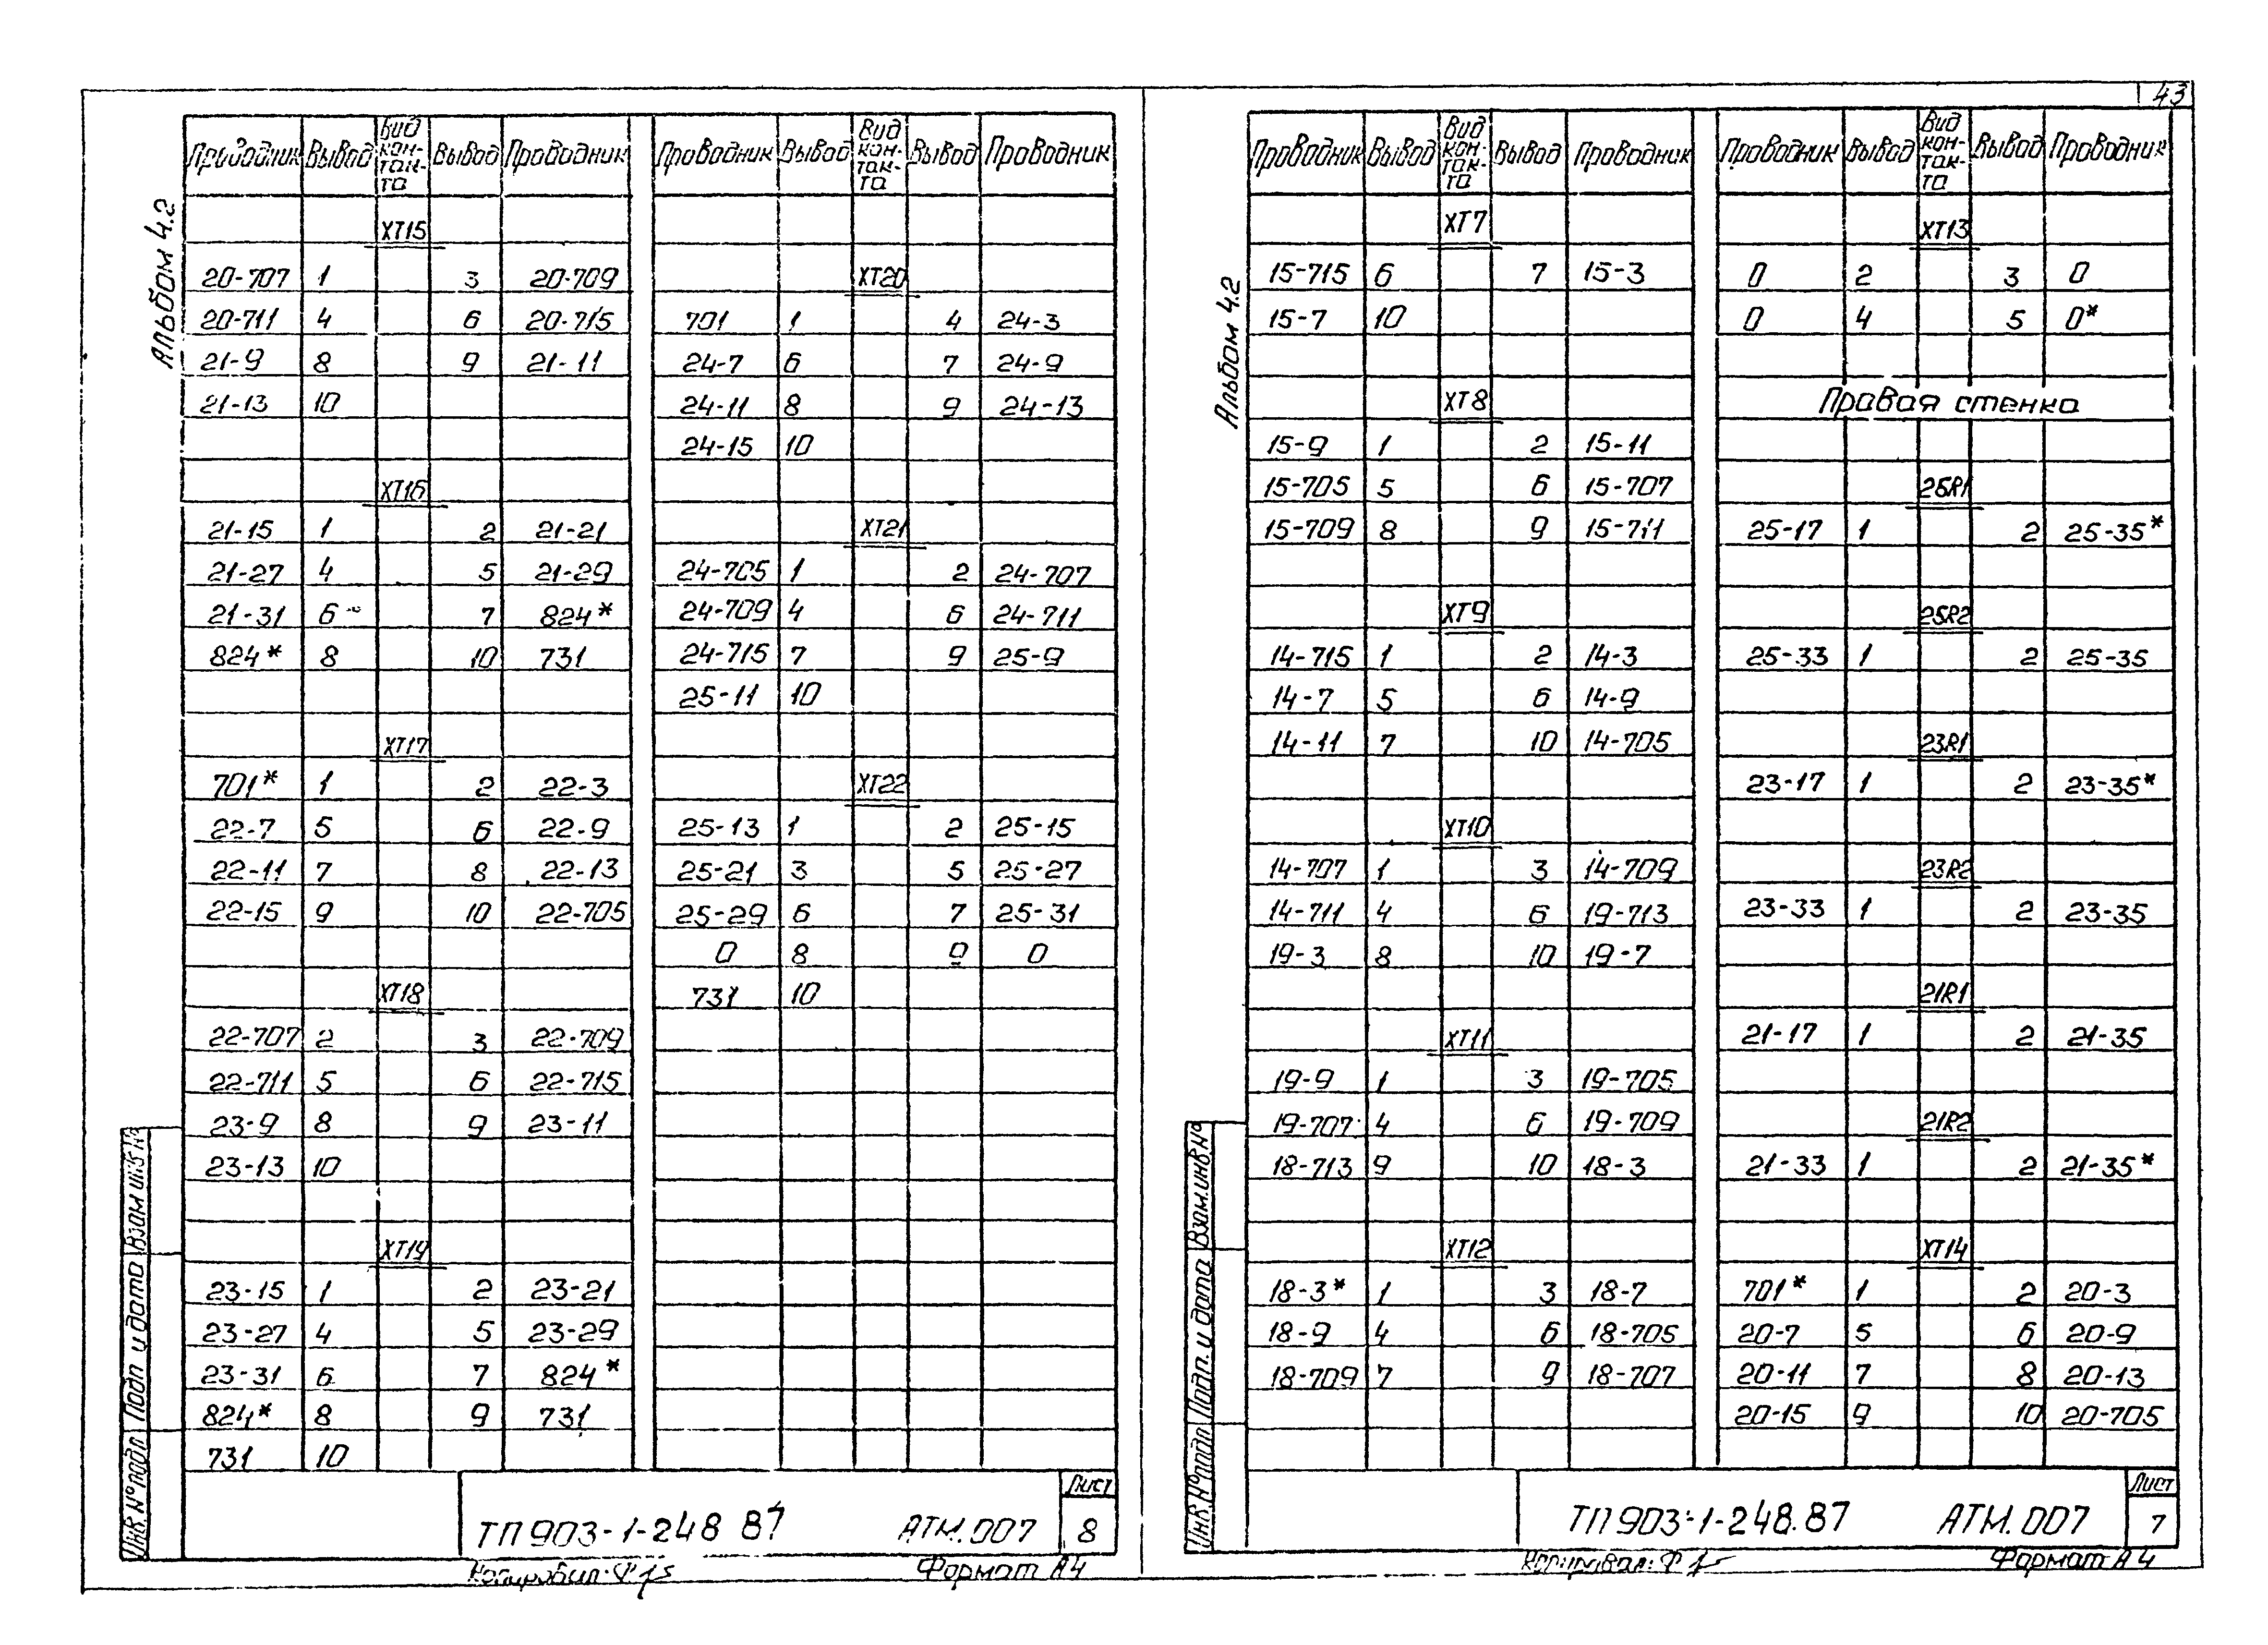 43
Альбом 4.2
Проводник Вывод Вид кон-так-та Вывод Проводник
XT15
20-707 1 3 20-709
20-711 4 6 20-715
21-9 8 9 21-11
21-13 10
XT16
21-15 1 2 21-21
21-27 4 5 21-29
21-31 6 7 824*
824* 8 10 731
XT17
701* 1 2 22-3
22-7 5 6 22-9
22-11 7 8 22-13
22-15 9 10 22-705
XT18
22-707 2 3 22-709
22-711 5 6 22-715
23-9 8 9 23-11
23-13 10
XT19
23-15 1 2 23-21
23-27 4 5 23-29
23-31 6 7 824*
824* 8 9 731
731 10
Проводник Вывод Вид кон-так-та Вывод Проводник
XT20
701 1 4 24-3
24-7 6 7 24-9
24-11 8 9 24-13
24-15 10
XT21
24-705 1 2 24-707
24-709 4 6 24-711
24-715 7 9 25-9
25-11 10
XT22
25-13 1 2 25-15
25-21 3 5 25-27
25-29 6 7 25-31
0 8 9 0
731 10
Инв.№подл Подп и дата Взам инв №
ТП 903-1-248 87 АТМ.007
Лист
8
Копировал: Формат А4
Альбом 4.2
Проводник Вывод Вид кон-так-та Вывод Проводник
XT7
15-715 6 7 15-3
15-7 10
XT8
15-9 1 2 15-11
15-705 5 6 15-707
15-709 8 9 15-711
XT9
14-715 1 2 14-3
14-7 5 6 14-9
14-11 7 10 14-705
XT10
14-707 1 3 14-709
14-711 4 6 19-713
19-3 8 10 19-7
XT11
19-9 1 3 19-705
19-707 4 6 19-709
18-713 9 10 18-3
XT12
18-3* 1 3 18-7
18-9 4 6 18-705
18-709 7 9 18-707
Проводник Вывод Вид кон-так-та Вывод Проводник
XT13
0 2 3 0
0 4 5 0*
Правая стенка
25R1
25-17 1 2 25-35*
25R2
25-33 1 2 25-35
23R1
23-17 1 2 23-35*
23R2
23-33 1 2 23-35
21R1
21-17 1 2 21-35
21R2
21-33 1 2 21-35*
XT14
701* 1 2 20-3
20-7 5 6 20-9
20-11 7 8 20-13
20-15 9 10 20-705
Инв.№подл Подп. и дата Взам.инв.№
ТП 903-1-248.87 АТМ.007
Лист
7
Копировал: Формат А4